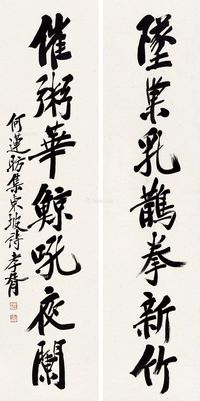 墜巢乳鵲拳新竹
催粥華鯨吼夜闌
何蓮舫集東坡詩 孝胥